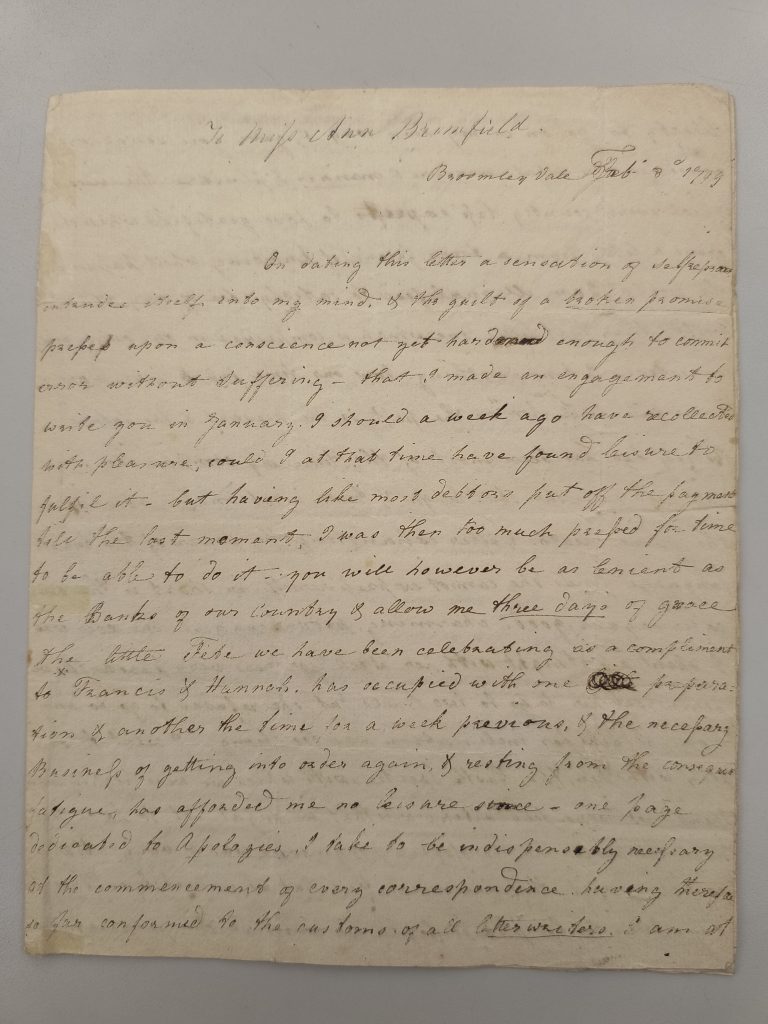 To Miss Ann Bromfield.
Broomley Vale Feb. 3d 1799
On dating this letter a sensation of selfreproach
intrudes itself into my mind, & the guilt of a broken promise
presses upon a conscience not yet hardened enough to commit
error without suffering – that I made an engagement to
write you in January. I should a week ago have recollected
with pleasure, could I at that time have found leisure to
fulfil it – but having like most debtors put off the payment
till the last moment, I was then too much pressed for time
to be able to do it – you will however be as lenient as
the Banks of our country & allow me three days of grace
the little Fete we have been celebrating as a compliment
to Francis & Hannah. has occupied with one prepara=
tion & another the time for a week previous, & the necessary
Business of getting into order again, & resting from the consequent
fatigue, has afforded me no leisure since – one page
dedicated to Apologies, I take to be indispensibly necessary
at the commencement of every correspondence. having therefore
so far conform'd to the customs of all letter writers. I am at